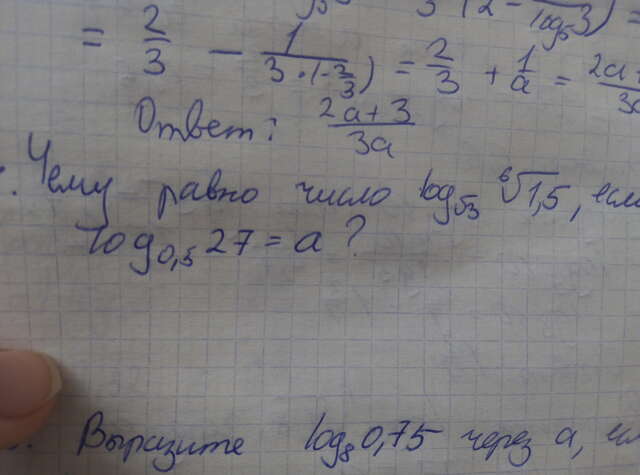 3 (2 - log₅3) =
= 2/3 - 1/(3·(-a/3)) = 2/3 + 1/a = 2a+/3a
Ответ: 2a+3/3a
Чему равно число log√3 ⁶√1,5, если
log0,5 27 = a?
Выразите log₈0,75 через a,